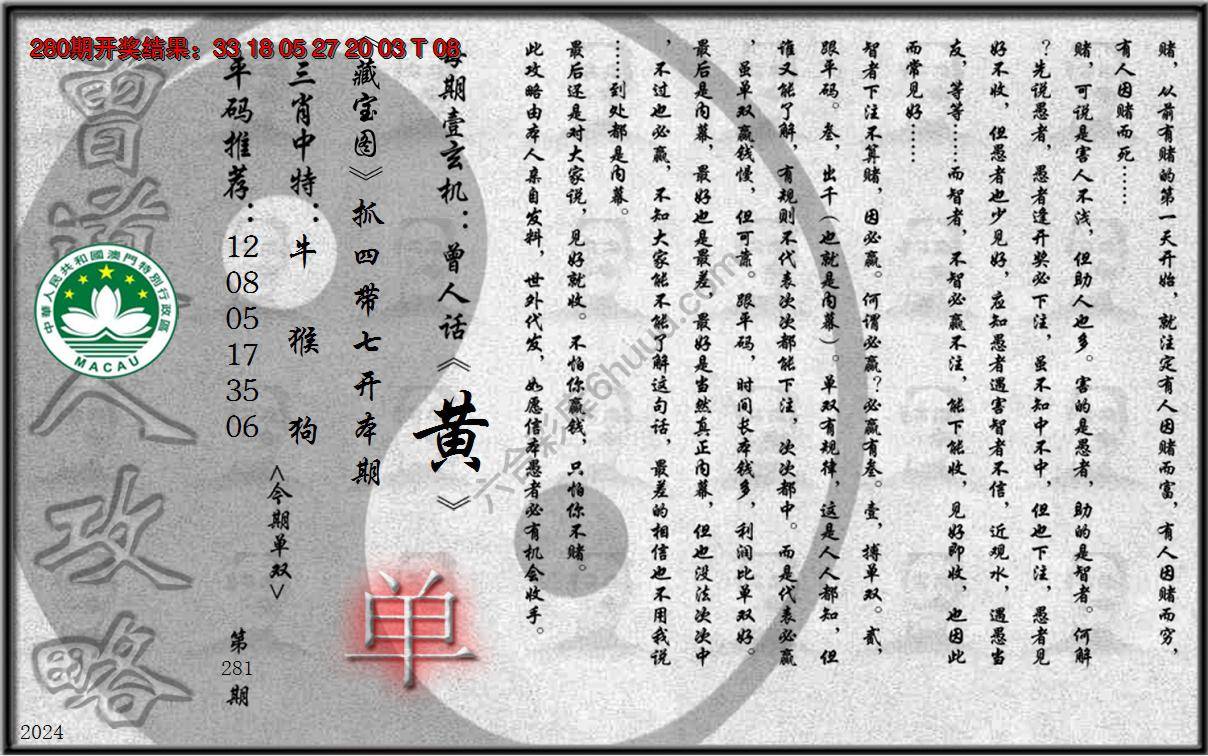 280期开奖结果：33 18 05 27 20 03 T 08
赌，从前有赌的第一天开始，就注定有人因赌而富，有人因赌而穷，
有人因赌而死……
赌，可说是害人不浅，但助人也多。害的是愚者，助的是智者。何解
？先说愚者，愚者逢开奖必下注，虽不知中不中，但也下注，愚者见
好不收，但愚者也少见好，应知愚者遇害智者不信，近观水，遇愚当
友，等等……而智者，不智必赢不注，能下能收，见好即收，也因此
而常见好……
智者下注不算赌，因必赢。何谓必赢？必赢有叁。壹，搏单双。贰，
跟平码。叁，出千（也就是内幕）。单双有规律，这是人人都知，但
谁又能了解，有规则不代表次次都能下注，次次都中。而是代表必赢
，虽单双赢钱慢，但可靠。跟平码，时间长本钱多，利润比单双好。
最后是内幕，最好也是最差，最好是当然真正内幕，但也没法次次中
，不过也必赢，不知大家能不能了解这句话，最差的相信也不用我说
……到处都是内幕。
最后还是对大家说，见好就收。不怕你赢钱，只怕你不赌。
此攻略由本人亲自发料，世外代发，如愿信本愚者必有机会收手。
每期壹玄机：曾人话《黄》
《藏宝图》抓四带七开本期
单
三肖中特：牛 猴 狗
<今期单双>
平码推荐：12 08 05 17 35 06
第281期
曾道人攻略
中華人民共和國澳門特別行政區
MACAU
六合彩库6huuu.com
2024